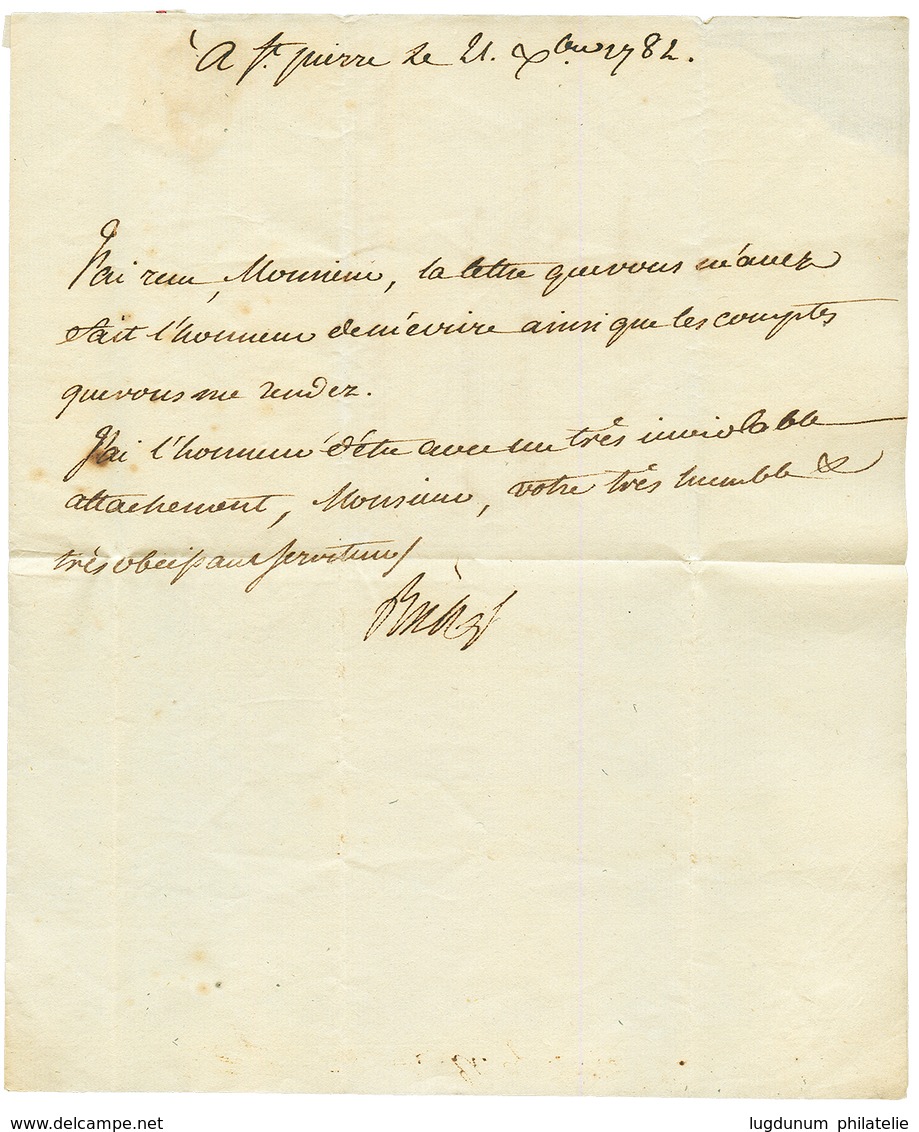 A St. pierre Le 21. Xbre 1782.
J'ai reçu, Monsieur, la lettre que vous m'avez
fait l'honneur de m'écrire ainsi que les comptes
que vous me rendez.
J'ai l'honneur d'être avec un très inviolable
attachement, Monsieur, votre très humble &
très obeissant serviteur
www.delcampe.net
lugdunum philatelie